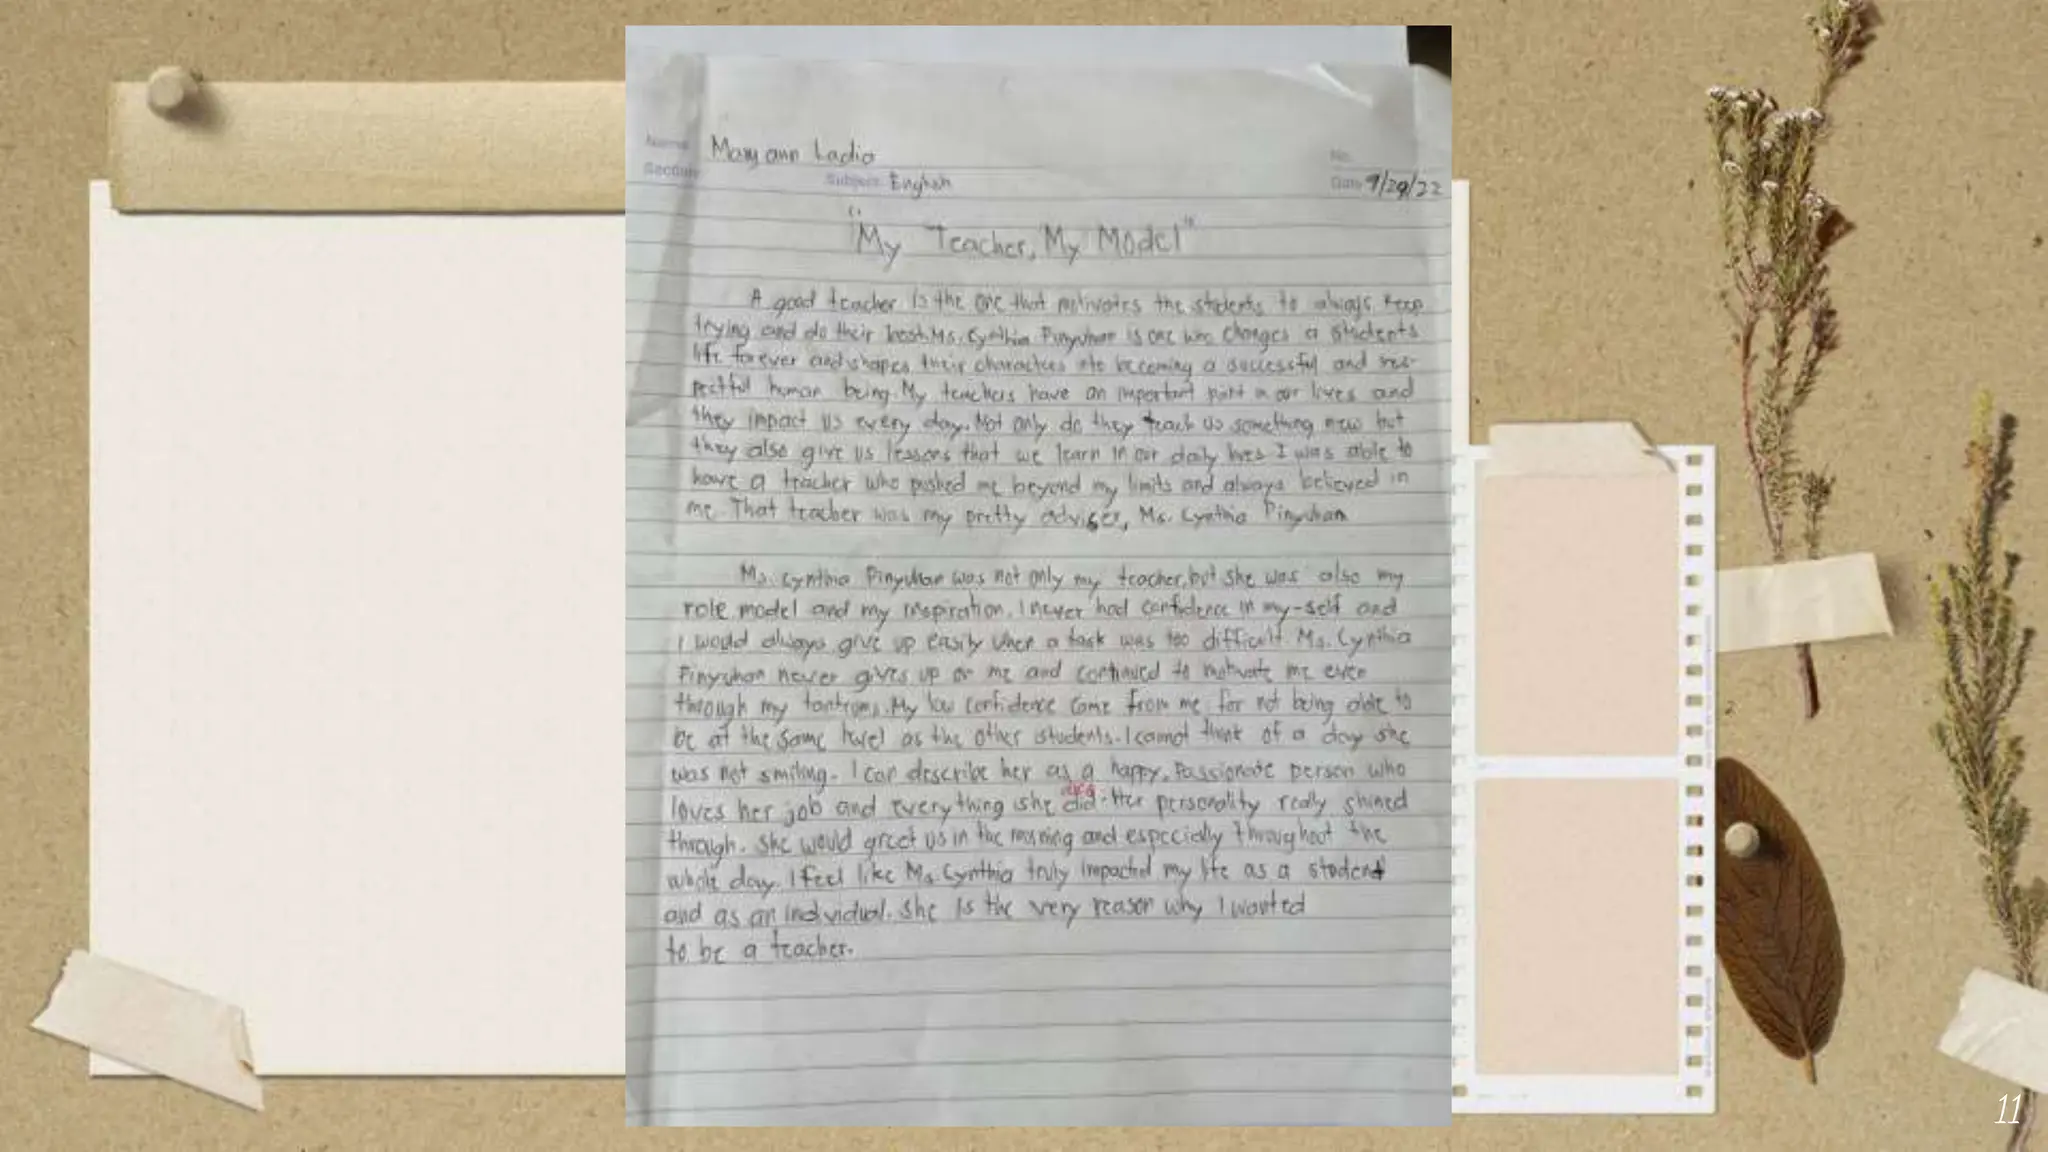 Name Maryann Ladia No.
Section Subject English Date 9/29/22
"My Teacher, My Model"
A good teacher is the one that motivates the students to always keep
trying and do their best. Ms. Cynthia Pinyuhan is one who changes a students
life forever and shapes their characters into becoming a successful and res-
pectful human being. My teachers have an important part in our lives and
they impact us every day. Not only do they teach us something new but
they also give us lessons that we learn in our daily lives I was able to
have a teacher who pushed me beyond my limits and always believed in
me. That teacher was my pretty adviser, Ms. Cynthia Pinyuhan
Ms. Cynthia Pinyuhan was not only my teacher, but she was also my
role model and my inspiration. I never had confidence in my-self and
I would always give up easily when a task was too difficult Ms. Cynthia
Pinyuhan never gives up on me and continued to motivate me even
through my tantrums. My low confidence came from me for not being able to
be at the same level as the other students. I cannot think of a day she
was not smiling. I can describe her as a happy, Passionate person who
loves her job and everything she did. Her personality really shined
through. She would greet us in the morning and especially throughout the
whole day. I feel like Ms. Cynthia truly impacted my life as a student
and as an individual. She is the very reason why I wanted
to be a teacher.
11